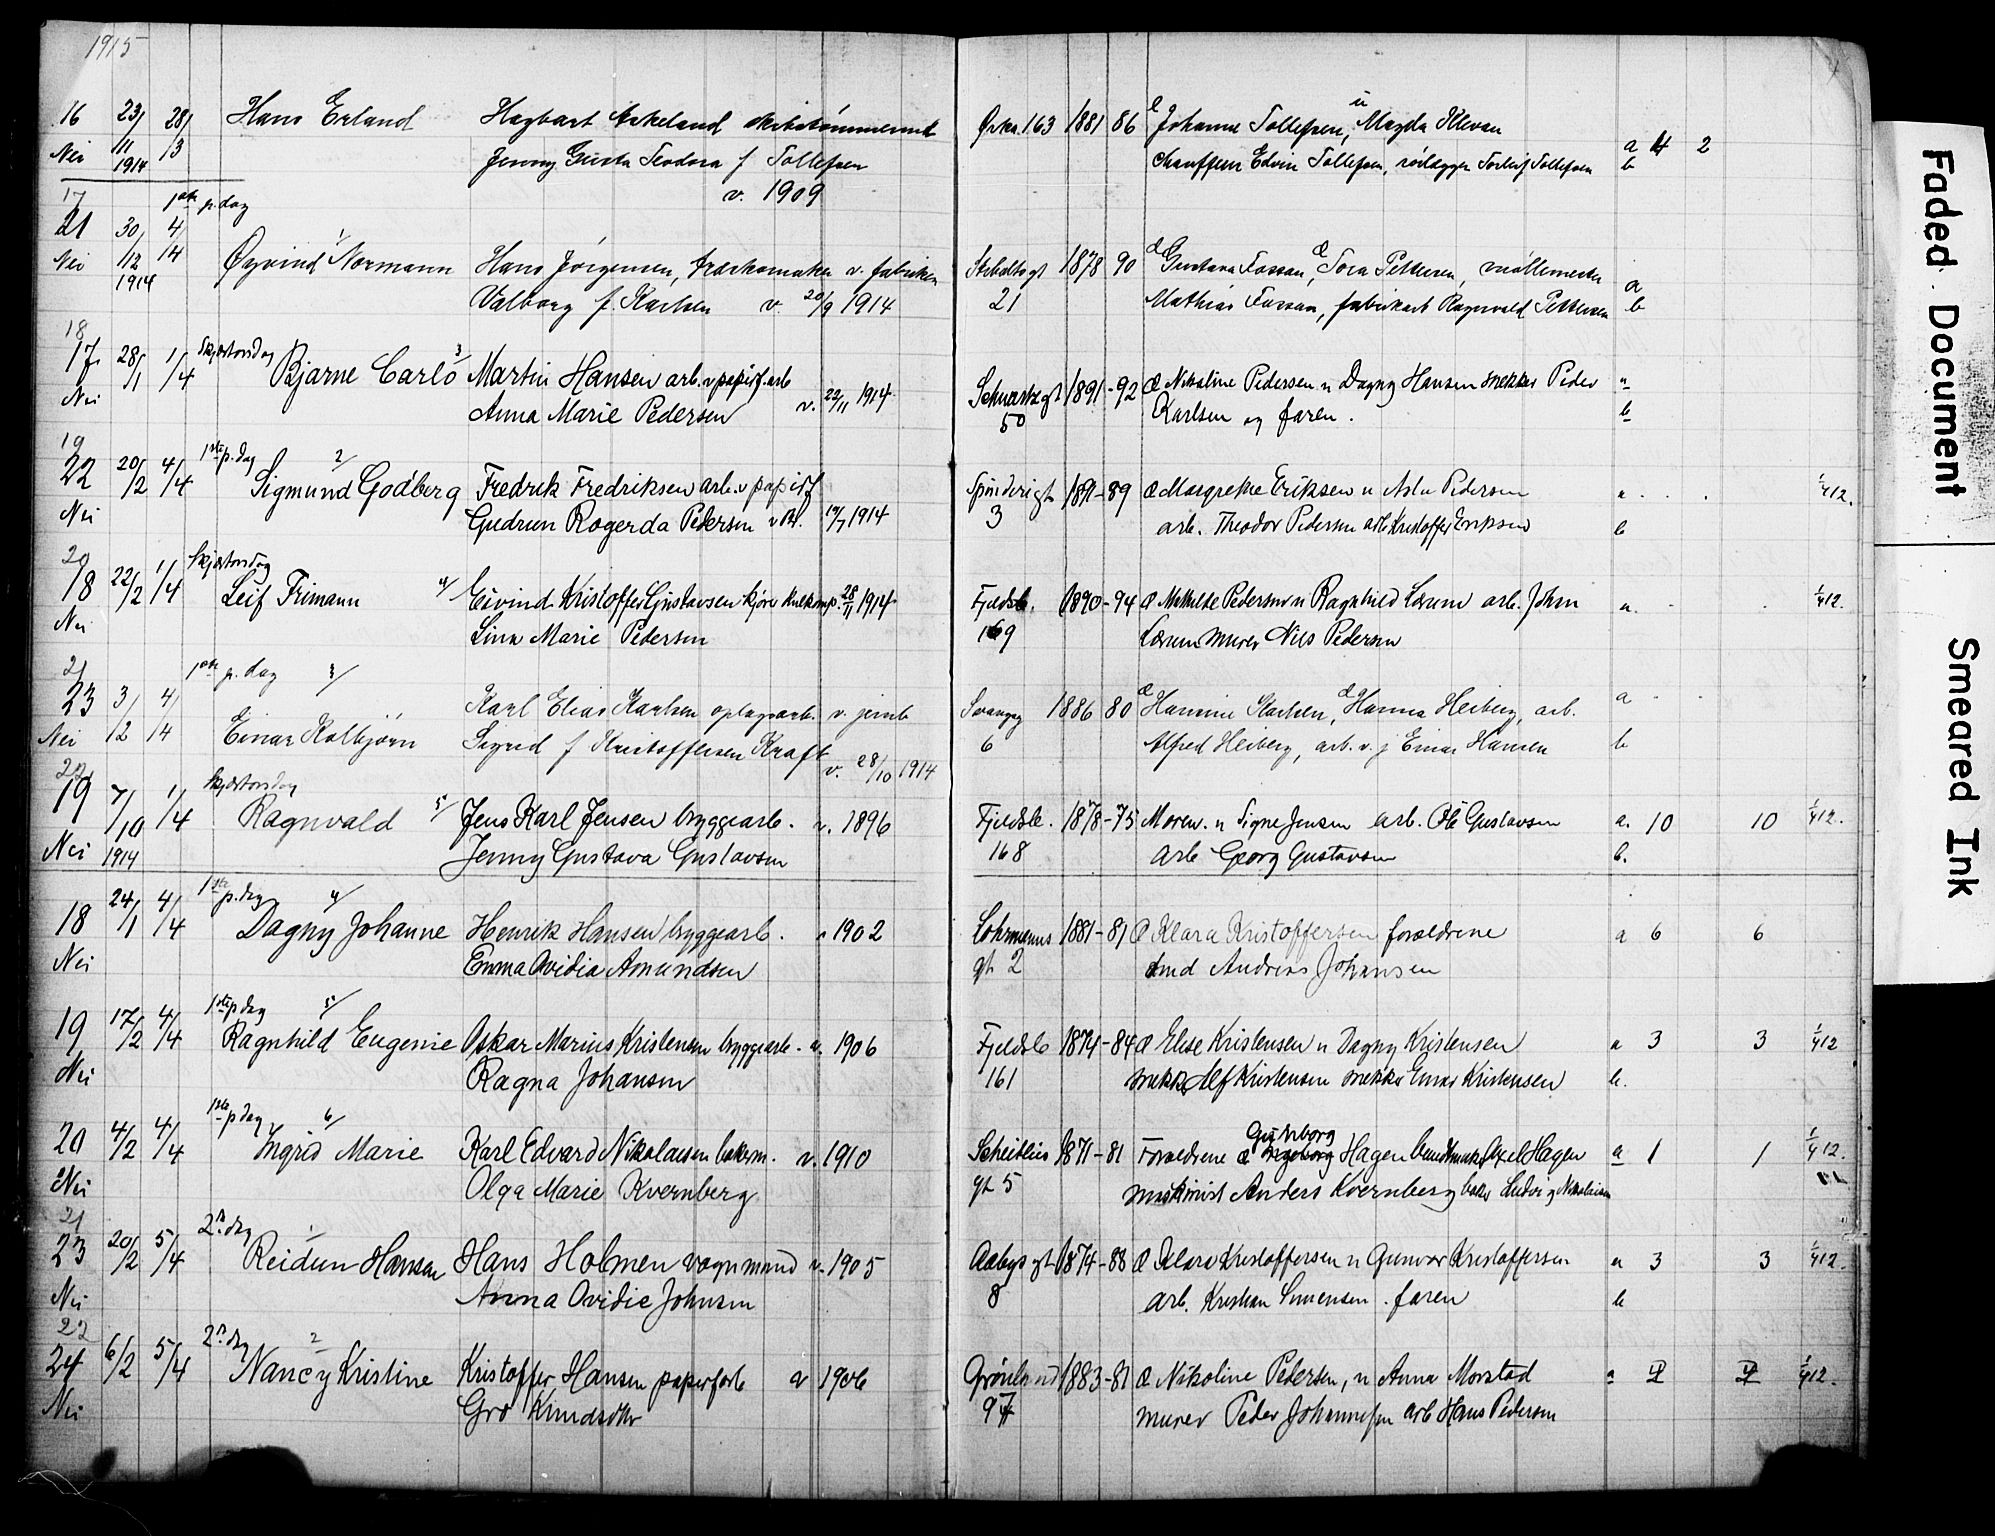 1915
16 23/11 1914 28/3 Hans Erland Hagbart Askeland skibstømmermd Øska. 163 1881 86 Johanne Tollefsen, u Magda
Nei Jenny Gusta Teodora f Tollefsen Chauffeur Edvin Tollefsen, rørlægger Torleif Tollefsen a 4 2
v. 1909 b
17 1ste p. dag
21 30/12 1914 4/4 Øyvind Normann 1/ Hans Jörgensen, v. fabriken 21 1878 90 Gustava Fossan, Tora Pettersen, møllemester
Nei Valborg f. Karlsen v. 20/9 1914 Mathias Fossan, fabrikarb Ragnvald Pettersen a b
18 Skjærtorsdag
17 28/1 1/4 Bjarne Carlo 3/ Martin Hansen arb. v papirf. arb Schwartz gt 50 1891-92 Nikoline Pedersen u Dagny Hansen snekker Peder a
Nei Anna Marie Pedersen v. 22/11 1914 Karlsen og faren. b
19 1ste p. dag
22 20/2 4/4 Sigmund Godberg 2/ Fredrik Fredriksen arb. v papirf Spinderigt 3 1891-89 Margrethe Eriksen u Asta Pedersen a 1/4 12.
Nei Gudrun Rogerda Pedersen 19/7 1914 arb. Theodor Pedersen arb Kristoffer Eriksen b
20 Skjærtorsdag
18 22/2 1/4 Leif Frimann 4/ Eivind Kristoffer Gustavsen kjøre kulkomp. 28/11 1914 Fjeldsb. 169 1890-94 Mathilde Pedersen u Ragnhild Lærum arb. Johan a. 1/4 12.
Nei Lina Marie Pedersen Lærum murer Nils Pedersen
21 1ste p. dag 3/
23 3/2 4/4 Einar Kolbjørn Karl Elias Karlsen oplagsarb. v. jernb Svangsg 6 1886 80 Hansine Karlsen, Hanna Heiberg, arb. a
Nei Sigrid f Kristoffersen Kraft v. 28/10 1914 Alfred Heiberg, arb. v. j Einar Hansen b
22 Skjærtorsdag
19 7/10 1914 1/4 Ragnvald 5/ Jens Karl Jensen bryggearb. v. 1896 Fjeldsb. 168 1878-75 Moren. u Signe Jensen arb. Ole Gustavsen a. 10 10 1/4 12.
Nei Jenny Gustava Gustavsen arb Georg Gustavsen b.
1ste p. dag
18 24/1 4/4 Dagny Johanne 4/ Henrik Hansen bryggearb. v 1902 Lohrmanns gt 2 1881-81 Klara Kristoffersen forældrene a 6 6
Nei Emma Ovidia Amundsen smd Andreas Johansen
1ste p dag
19 17/2 4/4 Ragnhild Eugenie 5/ Oskar Marius Kristensen bryggearb. v. 1906 Fjeldsb 161 1874-84 Elise Kristensen u Dagny Kristensen a 3 3 1/4 12
Nei Ragna Johansen snekk Alf Kristensen snekker Einar Kristensen b.
1ste p dag
20 4/2 4/4 Ingrid Marie 6/ Karl Edvard Nikolaisen bakerm. v. 1910 Scheitlies gt 5 1871-81 Forældrene Gudborg Ingeborg Hagen Axel Hagen a 1 1 1/4 12.
Nei Olga Marie Kvernberg maskinist Anders Kvernberg baker Ludvig Nikolaisen
21 2n. dag
23 20/2 5/4 Reidun Hansen 1/ Hans Holmen vognmand v. 1905 Aabys gt 8 1874-88 Klara Kristoffersen u Gunvor Kristoffersen a 3 3 1/4 12.
Nei Anna Ovidie Johnsen arb. Kristian Simensen. faren b
22 2n. dag
24 6/2 5/4 Nancy Kristine 2/ Kristoffer Hansen papirfarb v 1906 Grönland 97 1883-81 Nikoline Pedersen, u Anna Morstad a 4 4 1/4 12.
Nei Gro Knudsdtr murer Peder Johannesen arb Hans Pedersen
Faded Document
Smeared Ink